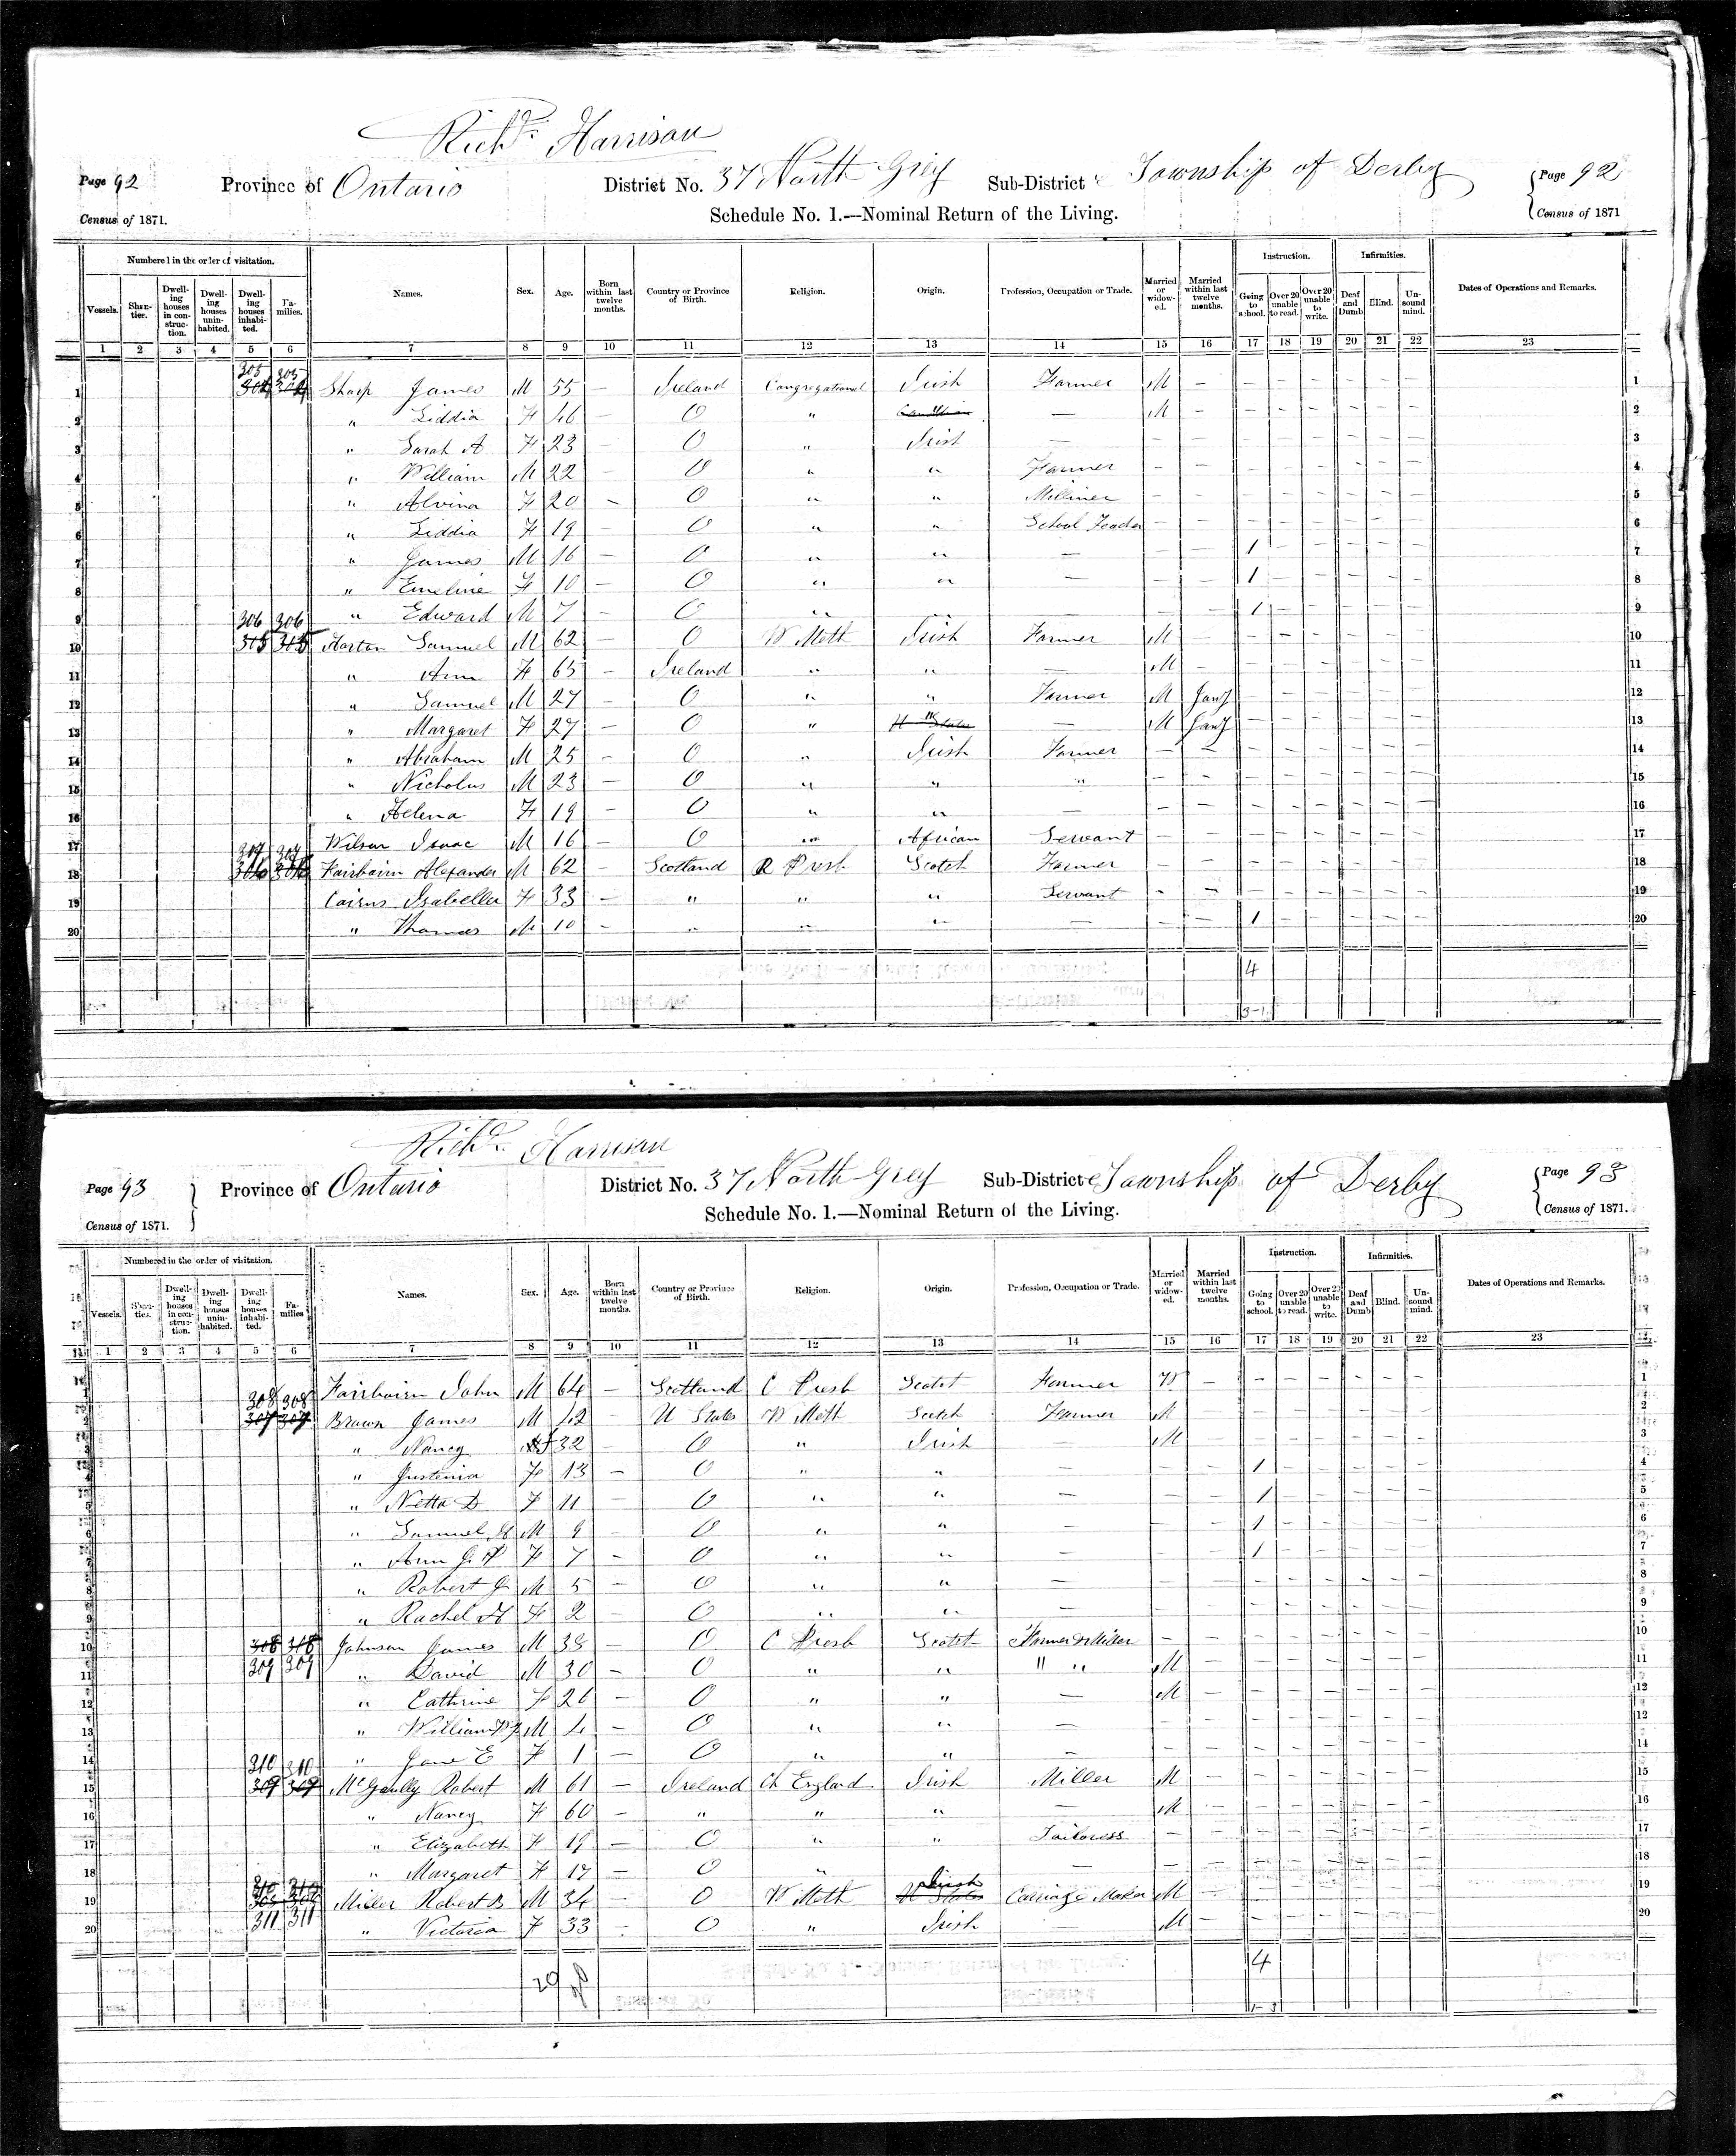 Richd. Harrison
Page 92 Province of Ontario District No. 37 North Grey Sub-District Township of Derby Page 92
Census of 1871. Schedule No. 1.—Nominal Return of the Living. Census of 1871
Numbered in the order of visitation. Instruction. Infirmities.
Vessels. Shan-tier. Dwell-ing houses in con-struc-tion. Dwell-ing houses unin-habited. Dwell-ing houses inhabi-ted. Fa-milies. Names. Sex. Age. Born within last twelve months. Country or Province of Birth. Religion. Origin. Profession, Occupation or Trade. Married or widow-ed. Married within last twelve months. Going to school. Over 20 unable to read. Over 20 unable to write. Deaf and Dumb Blind. Un-sound mind. Dates of Operations and Remarks.
1 2 3 4 5 6 7 8 9 10 11 12 13 14 15 16 17 18 19 20 21 22 23
305 305
1 304 304 Sharp James M 55 — Ireland Congregational Irish Farmer M — – – – – – – 1
2 " Liddia F 46 — O " — M — – – – – – – 2
3 " Sarah A F 23 — O " Irish — – – – – – – – – 3
4 " William M 22 — O " " Farmer – – – – – – – – 4
5 " Alvina F 20 – O " " Milliner – – – – – – – – 5
6 " Liddia F 19 — O " " School Teacher – – – – – – – – 6
7 " James M 16 — O " " — – – 1 – – – – – 7
8 " Emeline F 10 — O " " — – – 1 – – – – – 8
9 " Edward M 7 — O " " — – – 1 – – – – – 9
306 306
10 305 305 Horton Samuel M 62 — O W Meth Irish Farmer M — – – – – – – 10
11 " Ann F 65 — Ireland " " — M — – – – – – – 11
12 " Samuel M 27 — O " " Farmer M Jany – – – – – – 12
13 " Margaret F 27 — O " U States " — M Jany – – – – – – 13
14 " Abraham M 25 — O " Irish Farmer – – – – – – – – 14
15 " Nicholus M 23 — O " " " – – – – – – – – 15
16 " Helena F 19 – O " " — – – – – – – – – 16
17 Wilson Isaac M 16 — O " African Servant – – – – – – – – 17
307 307
18 306 306 Fairbairn Alexander M 62 — Scotland R Presb Scotch Farmer – – – – – – – – 18
19 Cairns Isabella F 33 — " " " Servant – – – – – – – – 19
20 " Thomas M 10 – " " " — – – 1 – – – – – 20
4
3-1
Richd. Harrison
Page 93 Province of Ontario District No. 37 North Grey Sub-District Township of Derby Page 93
Census of 1871. Schedule No. 1.—Nominal Return of the Living. Census of 1871.
Numbered in the order of visitation. Instruction. Infirmities.
Vessels. Shan-ties. Dwell-ing houses in con-struc-tion. Dwell-ing houses unin-habited. Dwell-ing houses inhabi-ted. Fa-milies Names. Sex. Age. Born within last twelve months. Country or Province of Birth. Religion. Origin. Profession, Occupation or Trade. Married or widow-ed. Married within last twelve months. Going to school. Over 20 unable to read. Over 20 unable to write. Deaf and Dumb Blind. Un-sound mind. Dates of Operations and Remarks.
1 2 3 4 5 6 7 8 9 10 11 12 13 14 15 16 17 18 19 20 21 22 23
1 Fairbairn John M 64 — Scotland C Presb Scotch Farmer W – – – – – – – 1
308 308
2 307 307 Brown James M 42 — U States W Meth Scotch Farmer M – – – – – – – 2
3 " Nancy F 32 — O " Irish — M – – – – – – – 3
4 " Justenia F 13 — O " " — – – 1 – – – – – 4
5 " Netta D F 11 — O " " — – – 1 – – – – – 5
6 " Samuel H M 9 — O " " — – – 1 – – – – – 6
7 " Ann J. P F 7 — O " " — – – 1 – – – – – 7
8 " Robert J M 5 — O " " — – – – – – – – – 8
9 " Rachel H F 2 — O " " — – – – – – – – – 9
10 308 308 Johnson James M 38 — O C Presb Scotch Farmer & Miller – – – – – – – – 10
11 309 309 " David M 30 — O " " " " M – – – – – – – 11
12 " Cathrine F 26 — O " " — M – – – – – – – 12
13 " William M 4 — O " " — – – – – – – – – 12
14 " Jane E F 1 — O " " — – – – – – – – – 14
310 310
15 309 309 McGaully Robert M 61 — Ireland Ch England Irish Miller M – – – – – – – 15
16 " Nancy F 60 — " " " — M – – – – – – – 16
17 " Elizabeth F 19 — O " " Tailoress – – – – – – – – 17
18 " Margaret F 17 — O " " — – – – – – – – – 18
310 310
19 Miller Robert B M 34 — O W Meth U States Irish Carriage Maker M – – – – – – – 19
20 311 311 " Victoria F 33 – O " Irish — M – – – – – – – 20
20 4
1-3